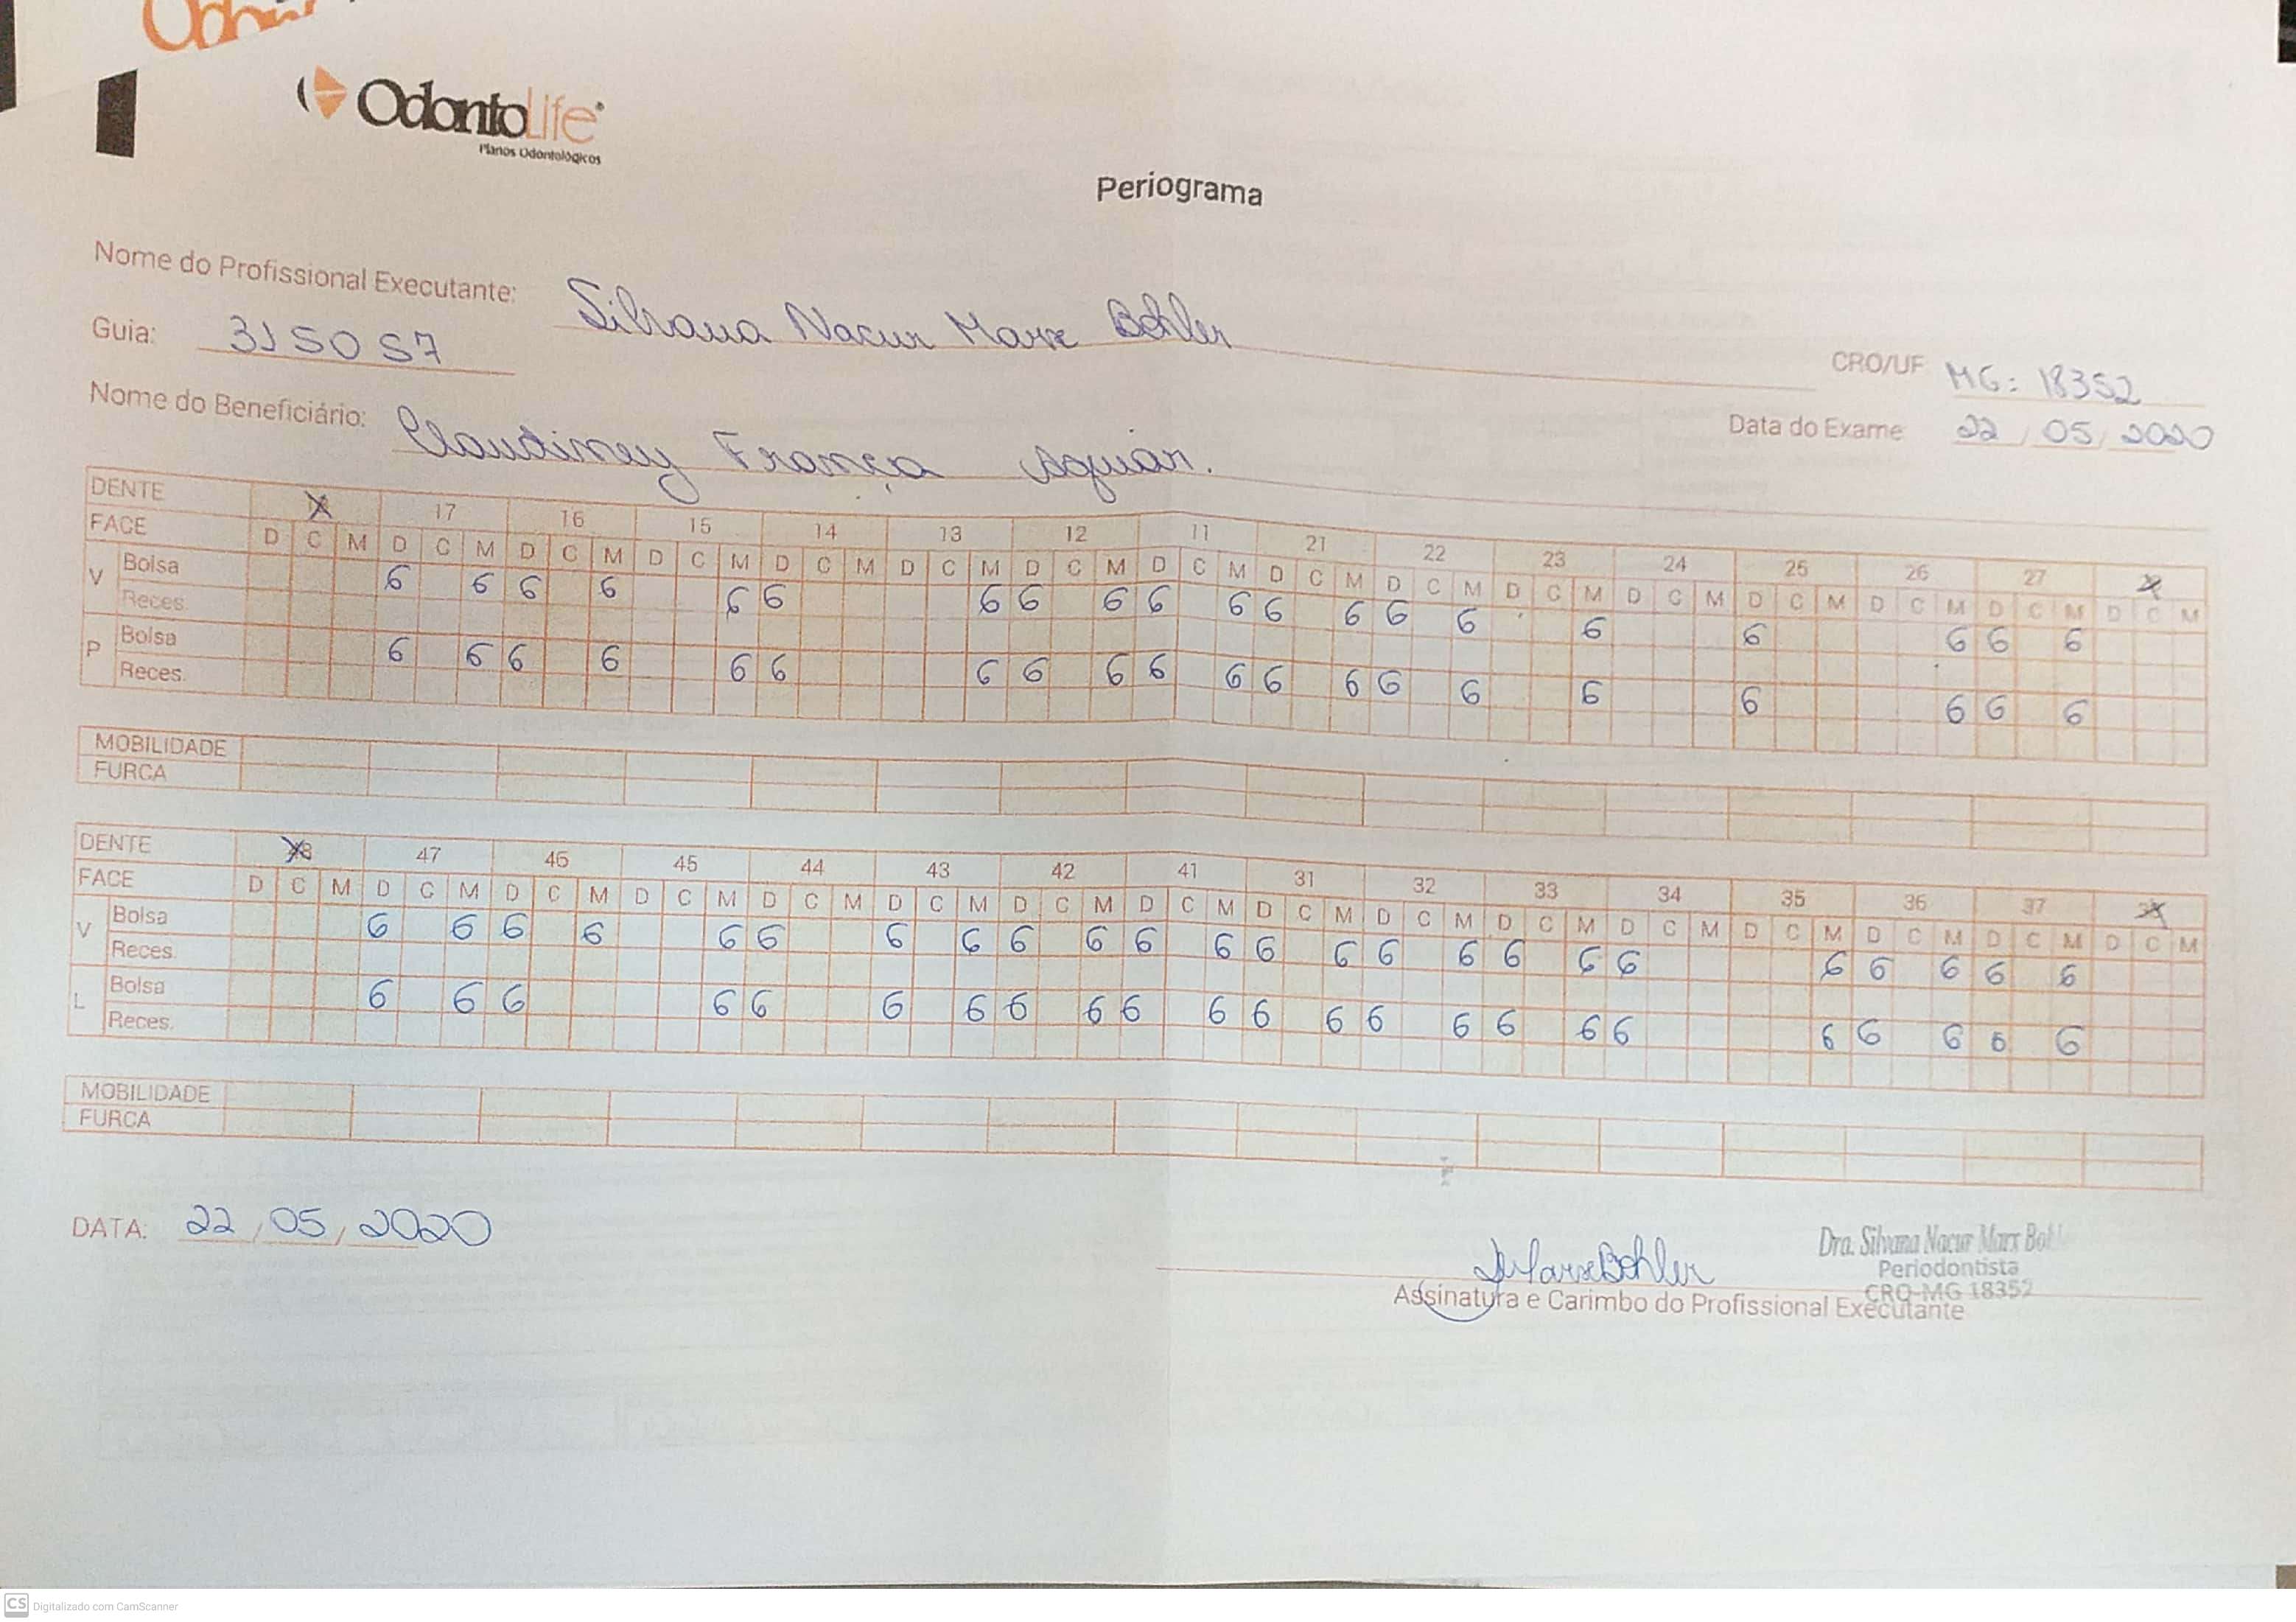 OdontoLife
Planos Odontológicos
Periograma
Nome do Profissional Executante: Silvana Nacur Marx Bohler
Guia: 315057
CRO/UF MG: 18352
Nome do Beneficiário: Claudiney França Aguiar.
Data do Exame 22/05/2020
DENTE 17 16 15 14 13 12 11 21 22 23 24 25 26 27
FACE D C M D C M D C M D C M D C M D C M D C M D C M D C M D C M D C M D C M D C M D C M D C M D C M
V Bolsa 6 6 6 6 6 6 6 6 6 6 6 6 6 6 6 6 6 6 6 6
Reces.
P Bolsa 6 6 6 6 6 6 6 6 6 6 6 6 6 6 6 6 6 6 6 6
Reces.
MOBILIDADE
FURCA
DENTE 48 47 46 45 44 43 42 41 31 32 33 34 35 36 37 38
FACE D C M D C M D C M D C M D C M D C M D C M D C M D C M D C M D C M D C M D C M D C M D C M D C M
V Bolsa 6 6 6 6 6 6 6 6 6 6 6 6 6 6 6 6 6 6 6 6 6 6 6 6
Reces.
L Bolsa 6 6 6 6 6 6 6 6 6 6 6 6 6 6 6 6 6 6 6 6 6 6 6
Reces.
MOBILIDADE
FURCA
DATA: 22/05/2020
Dra. Silvana Nacur Marx Bohl
Periodontista
CRO-MG 18352
Assinatura e Carimbo do Profissional Executante
CS Digitalizado com CamScanner